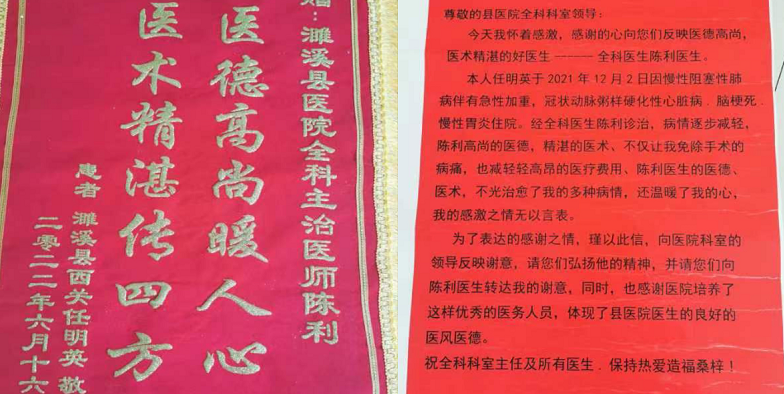 赠：濉溪县医院全科主治医师陈利
医德高尚暖人心
医术精湛传四方
患者 濉溪县西关任明英敬
二零二二年六月十六
尊敬的县医院全科科室领导：
今天我怀着感激，感谢的心向您们反映医德高尚，
医术精湛的好医生————全科医生陈利医生。
本人任明英于 2021 年 12 月 2 日因慢性阻塞性肺
病伴有急性加重，冠状动脉粥样硬化性心脏病．脑梗死．
慢性胃炎住院。经全科医生陈利诊治，病情逐步减轻，
陈利高尚的医德，精湛的医术、不仅让我免除手术的
病痛，也减轻轻高昂的医疗费用、陈利医生的医德、
医术，不光治愈了我的多种病情，还温暖了我的心，
我的感激之情无以言表。
为了表达的感谢之情，瑾以此信，向医院科室的
领导反映谢意，请您们弘扬他的精神，并请您们向
陈利医生转达我的谢意，同时，也感谢医院培养了
这样优秀的医务人员，体现了县医院医生的良好的
医风医德。
祝全科科室主任及所有医生．保持热爱造福桑梓！